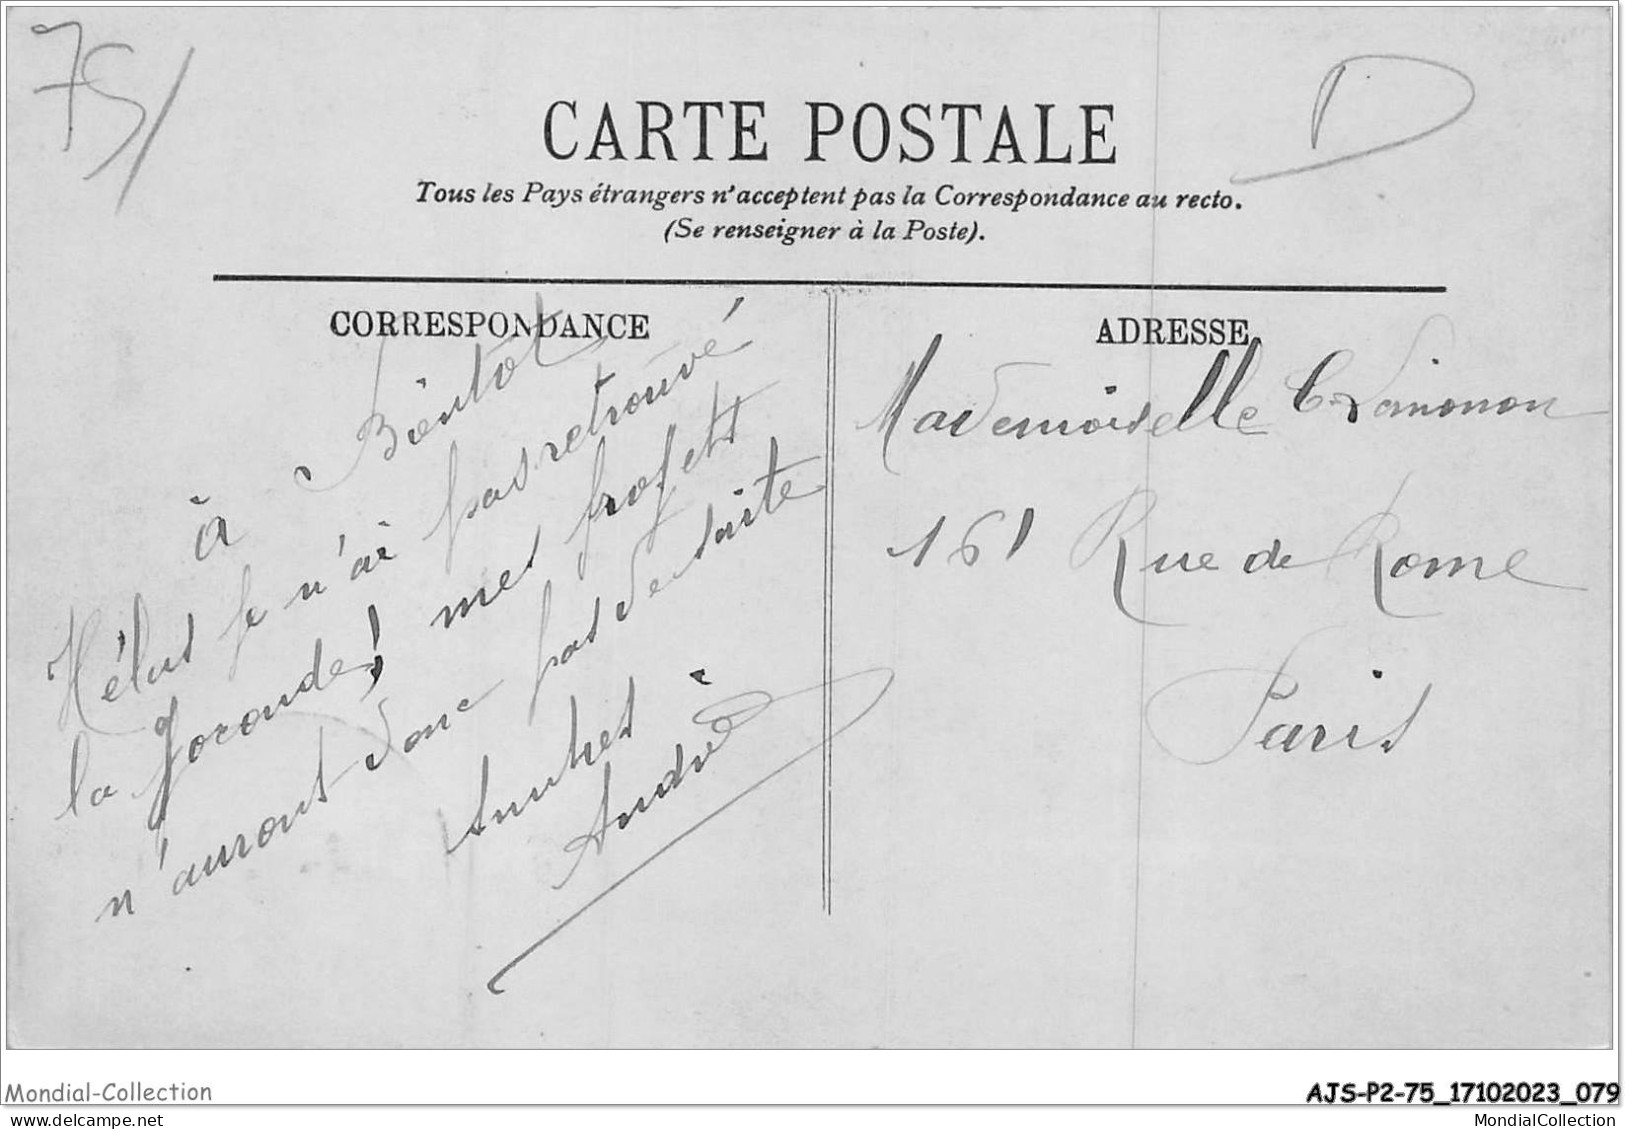 75/
D
CARTE POSTALE
Tous les Pays étrangers n'acceptent pas la Correspondance au recto.
(Se renseigner à la Poste).
CORRESPONDANCE
à Bientot
Hélas je n'ai pas retrouvé
la Joconde! mes projets
n'auront donc pas de suite
André
ADRESSE
Mademoiselle C.
161 Rue de Rome
Paris
Mondial-Collection
AJS-P2-75_17102023_079
www.delcampe.net
MondialCollection